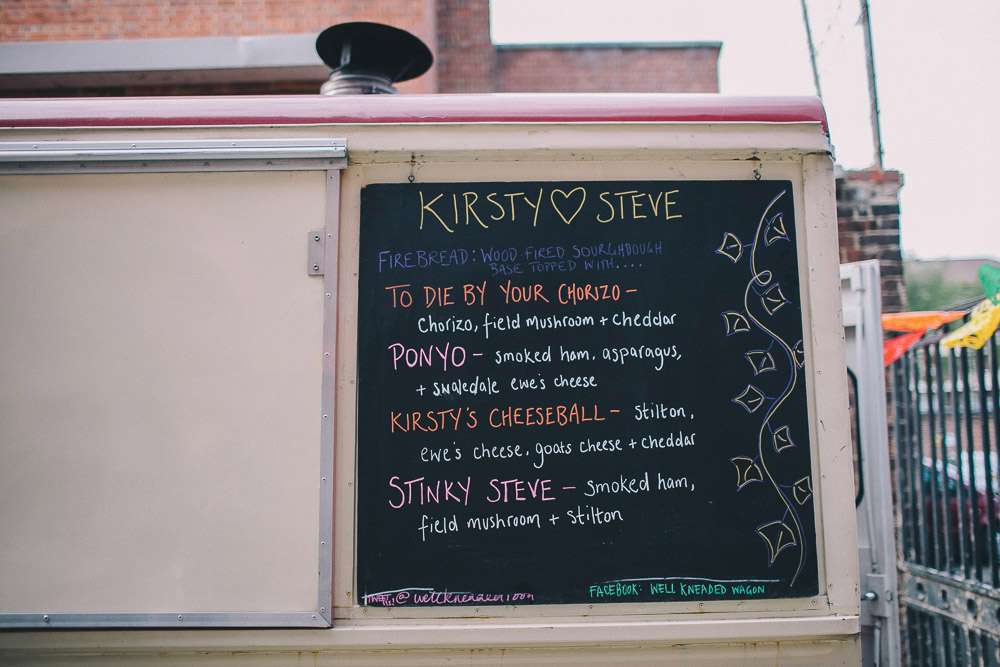 KIRSTY ♡ STEVE
FIREBREAD: WOOD FIRED SOURGHDOUGH
BASE TOPPED WITH....
TO DIE BY YOUR CHORIZO –
Chorizo, field mushroom + cheddar
PONYO – smoked ham, asparagus,
+ swaledale ewe's cheese
KIRSTY'S CHEESEBALL – stilton,
ewe's cheese, goats cheese + cheddar
STINKY STEVE – smoked ham,
field mushroom + stilton
TWEET
FACEBOOK: WELL KNEADED WAGON